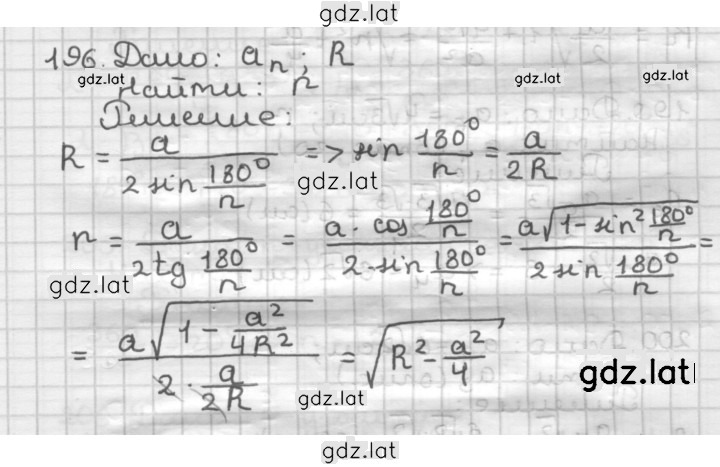 gdz.lat
196. Дано: a_n; R
gdz.lat gdz.lat
Найти: r
Решение:
R = a / (2 sin 180°/n) => sin 180°/n = a / 2R
gdz.lat
r = a / (2 tg 180°/n) = (a · cos 180°/n) / (2 · sin 180°/n) = (a√(1 - sin² 180°/n)) / (2 sin 180°/n) =
gdz.lat
= (a√(1 - a²/4R²)) / (2 · a/2R) = √(R² - a²/4)
gdz.lat gdz.lat
gdz.lat